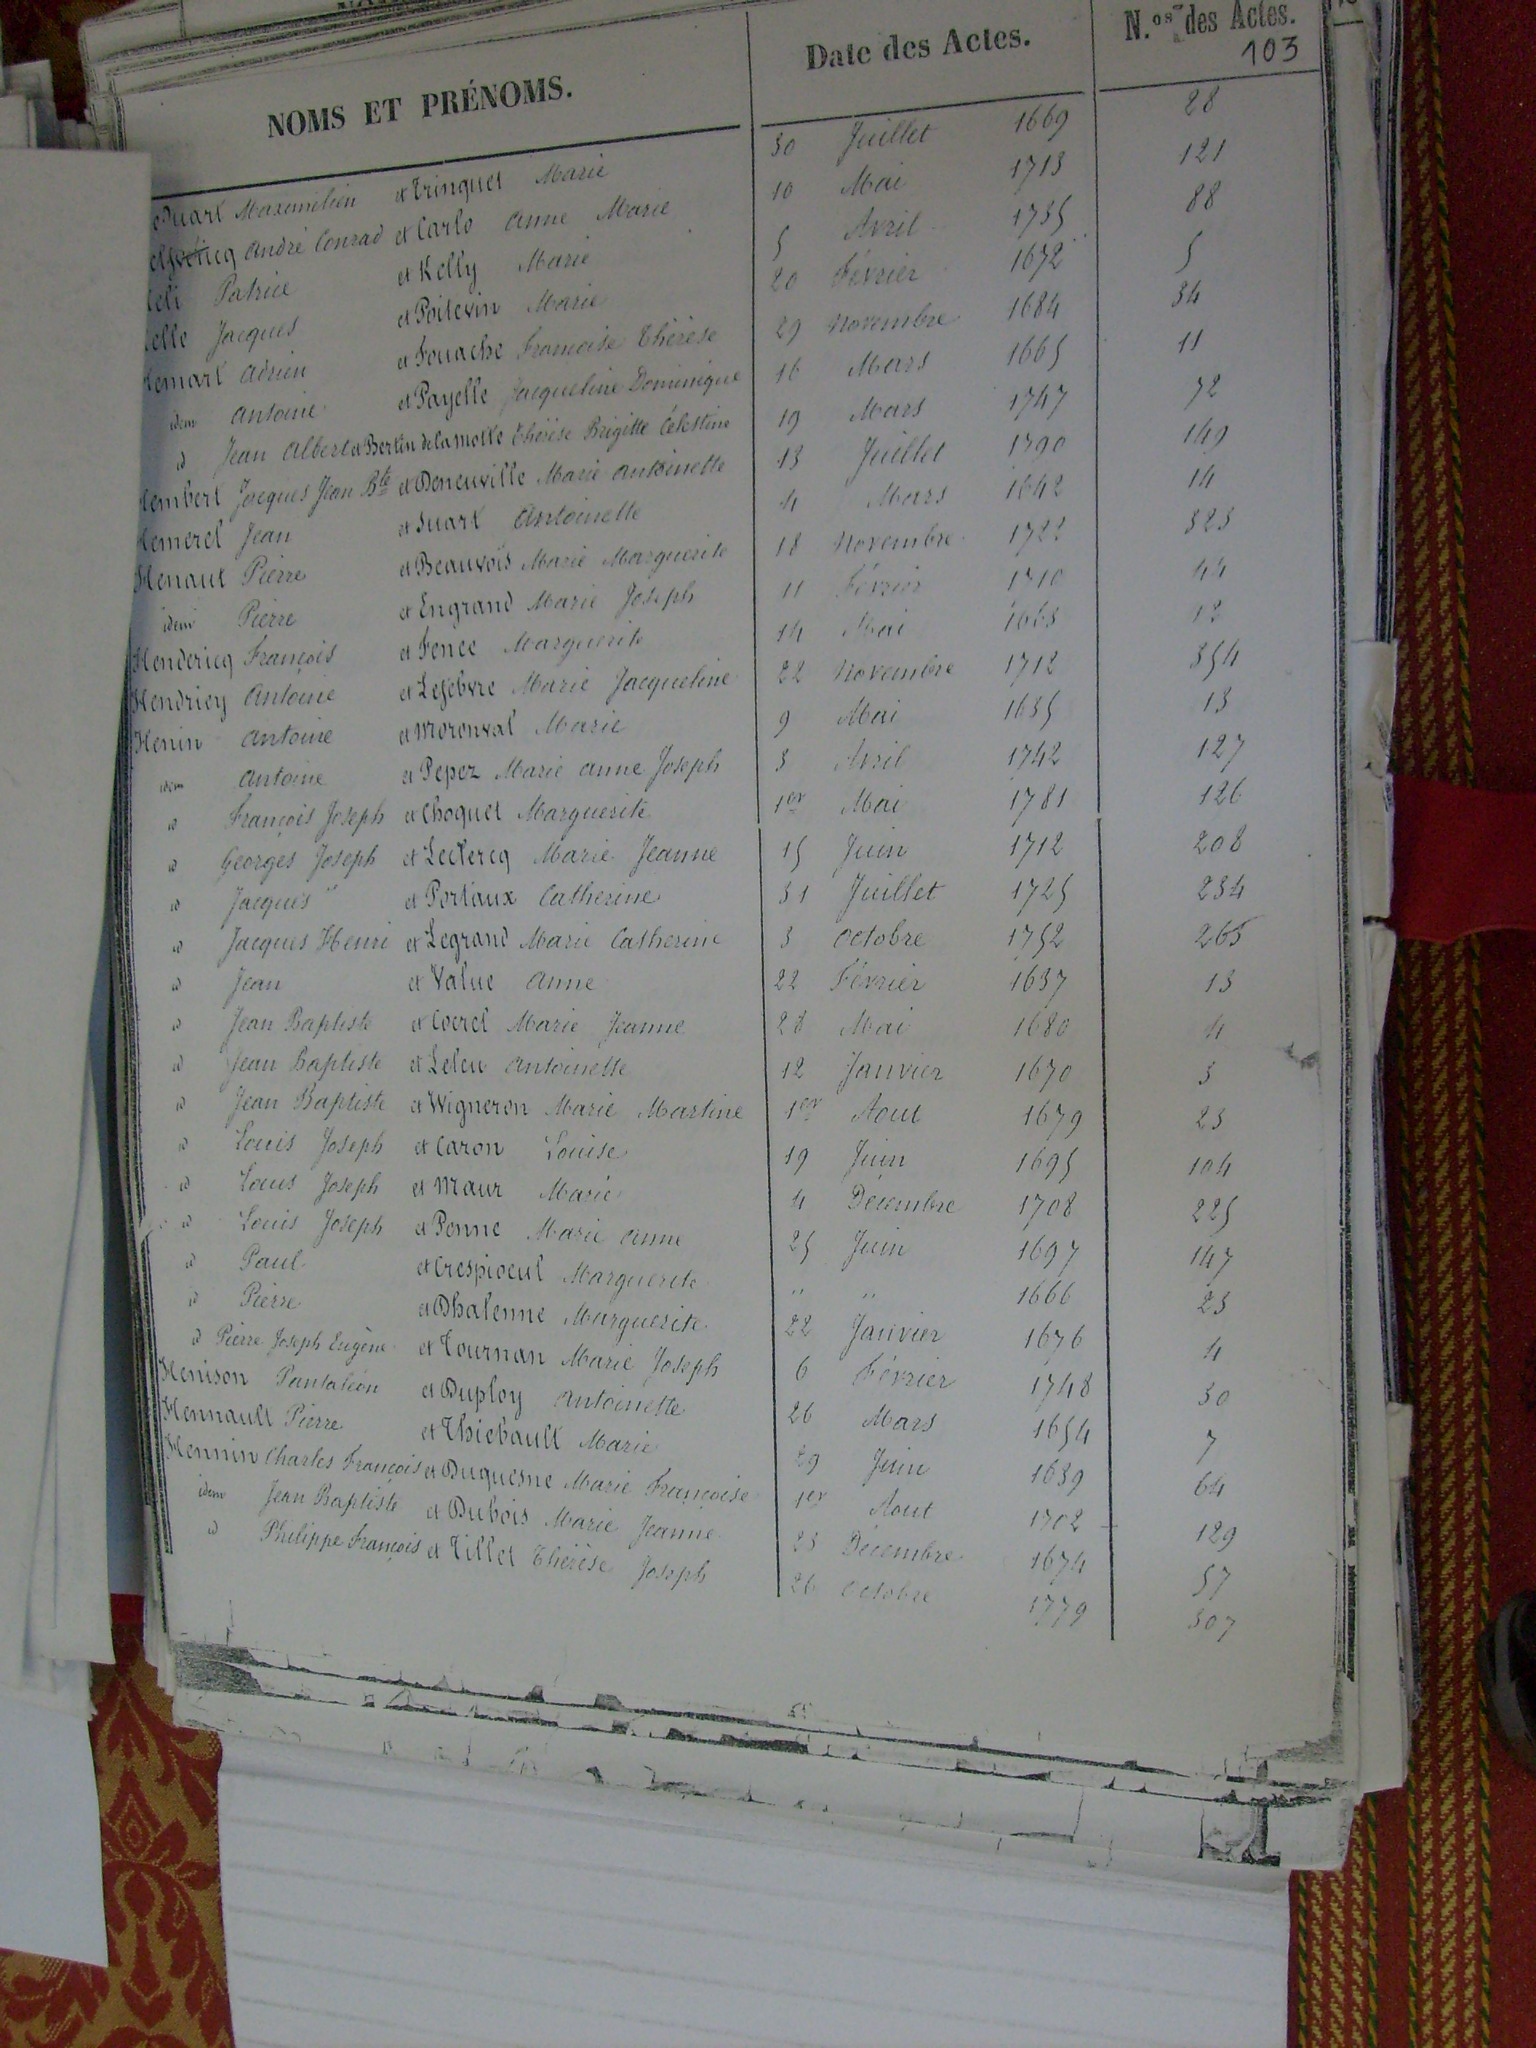 NOMS ET PRÉNOMS. Date des Actes. N.os des Actes.
103
Maximilien et Trinquet Marie 30 Juillet 1669 28
André Conrad et Carlo Anne Marie 10 Mai 1713 121
Patrice et Kelly Marie 5 Avril 1735 88
Jacques et Poitevin Marie 20 Février 1672 5
Hemart Adrien et Fouache Françoise Thérèse 29 Novembre 1684 34
idem Antoine et Payelle Jacqueline Dominique 16 Mars 1665 11
id Jean Albert et Bertin de la motte Thérèse Brigitte Célestine 19 Mars 1747 72
Hembert Jacques Jean Bte et Deneuville Marie Antoinette 13 Juillet 1790 149
Hemerel Jean et Suart Antoinette 4 Mars 1642 14
Henaut Pierre et Beauvois Marie Marguerite 18 Novembre 1722 323
idem Pierre et Engrand Marie Joseph 11 Février 1710 44
Hendericq François et Fence Marguerite 14 Mai 1663 12
Hendricy Antoine et Lefebvre Marie Jacqueline 22 Novembre 1712 354
Henin Antoine et Moronval Marie 9 Mai 1635 13
idem Antoine et Pepez Marie Anne Joseph 3 Avril 1742 127
id François Joseph et Choquet Marguerite 1er Mai 1781 126
id Georges Joseph et Leclercq Marie Jeanne 15 Juin 1712 208
id Jacques et Portaux Catherine 31 Juillet 1725 234
id Jacques Henri et Legrand Marie Catherine 3 Octobre 1752 265
id Jean et Value Anne 22 Février 1637 13
id Jean Baptiste et Coerel Marie Jeanne 28 Mai 1680 4
id Jean Baptiste et Leleu Antoinette 12 Janvier 1670 3
id Jean Baptiste et Wigneron Marie Martine 1er Aout 1679 23
id Louis Joseph et Caron Louise 19 Juin 1695 104
id Louis Joseph et Maur Marie 4 Décembre 1708 225
id Louis Joseph et Penne Marie Anne 25 Juin 1697 147
id Paul et Crespioeul Marguerite " " 1666 23
id Pierre et Dhalenne Marguerite 22 Janvier 1676 4
id Pierre Joseph Eugène et Tournan Marie Joseph 6 Février 1748 30
Henison Pantaléon et Duploy Antoinette 26 Mars 1654 7
Hennault Pierre et Thiebault Marie 29 Juin 1639 64
Hennin Charles François et Duquesne Marie Françoise 1er Aout 1702 129
idem Jean Baptiste et Dubois Marie Jeanne 23 Décembre 1674 57
id Philippe François et Tillet Thérèse Joseph 26 Octobre 1779 307